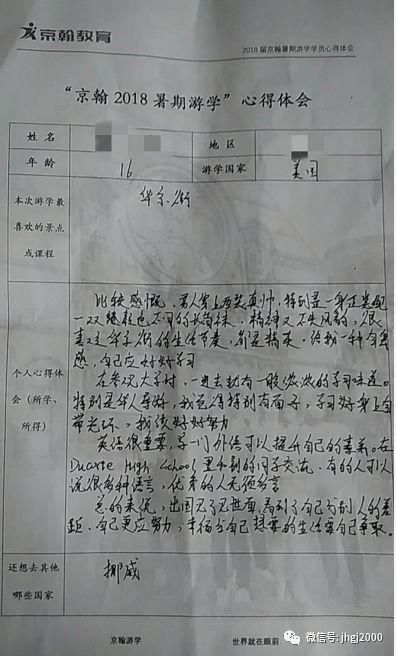 京翰教育
2018届京翰暑期游学学员心得体会
“京翰2018暑期游学”心得体会
姓名 地区
年龄 16 游学国家 美国
本次游学最
喜欢的景点
或课程
华尔街
个人心得体
会(所学、
所得)
比较感慨，男人穿上西装真帅，特别是一身正装配
一双颜色不同的长筒袜，精神又不失风韵，很
喜欢华尔街的生活节奏，都是精英，给我一种自卑
感，自己应好好学习
在参观大学时，一进去就有一股浓浓的学习味道。
特别是华人导游，我觉得特别有面子，学习好身上自
带光环，我该好好努力
英语很重要，学一门外语可以提升自己的素养。在
Duarte High School里和别的同学交流，有的人可以
说很多种语言，优秀的人无须多言
总的来说，出国见了见世面，看到了自己与别人的差
距，自己更应努力，幸福与自己想要的生活要自己争取。
还想去其他
哪些国家
挪威
京翰游学 世界就在眼前
微信号: jhgj2000